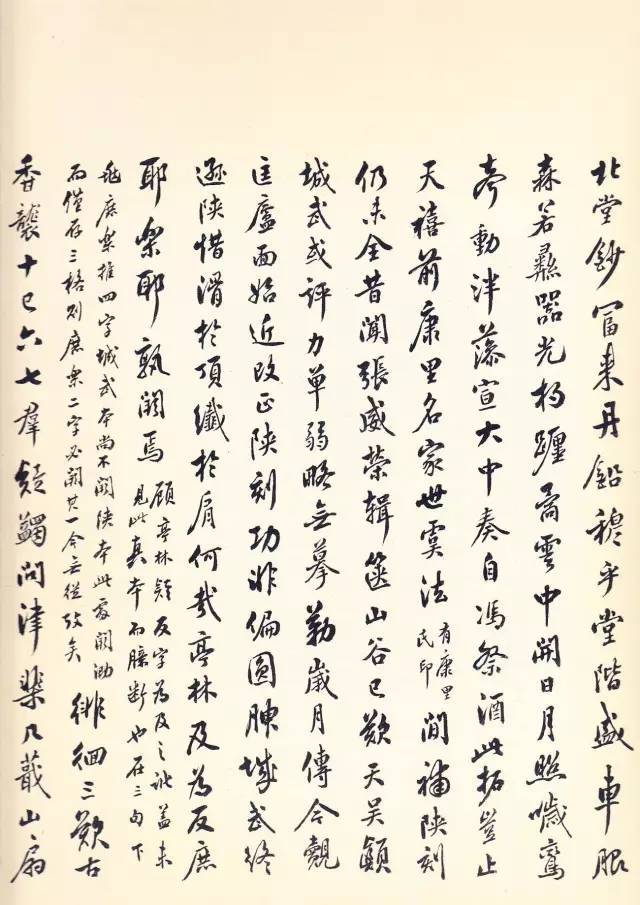 北堂鈔冨來丹鉛穆乎堂階盛車服
森若彝器光杓躔矞雲中開日月照噦鸞
旂動泮藻宣大中奏自馮祭酒此拓豈止
天禧前康里名家世虞法有康里氏印間補陝刻
仍未全昔聞張威榮輯篋山谷已歎天吳顛
城武或評力單弱略無摹勒歲月傳今覿
匡廬面始近改正陝刻功非偏圓腴城武終
遜陝惜滑於項纖於肩何哉亭林及為反庶
耶樂耶孰闕焉顧亭林疑反字為及之訛蓋未見此真本而臆斷也在三句下
兆庶樂推四字城武本尚不闕陝本此處闕泐而僅存三格則庶樂二字必闕其一今無從攷矣徘徊三歎古
香襲十已六七羣疑蠲問津棐几蕺山扇